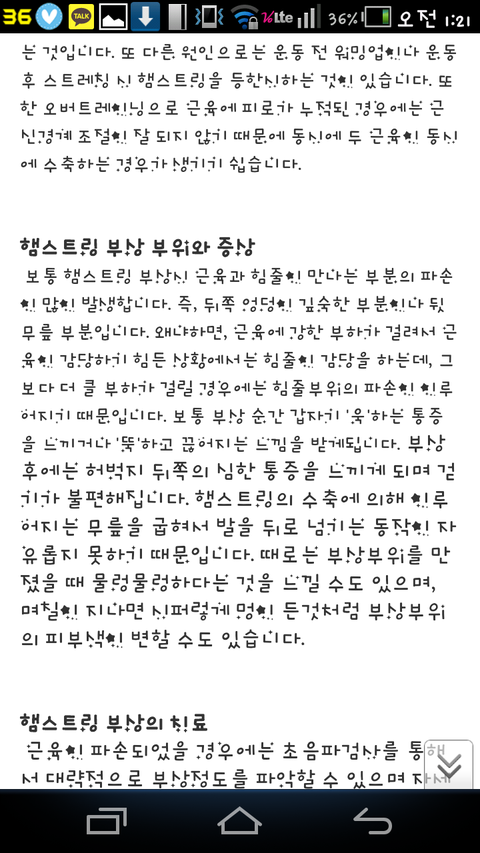 36 TALK LTE 36% 오전 1:21
는 것입니다. 또 다른 원인으로는 운동 전 워밍업이나 운동
후 스트레칭 시 햄스트링을 등한시하는 것이 있습니다. 또
한 오버트레이닝으로 근육에 피로가 누적된 경우에는 근
신경계 조절이 잘 되지 않기 때문에 동시에 두 근육이 동시
에 수축하는 경우가 생기기 쉽습니다.
햄스트링 부상 부위와 증상
보통 햄스트링 부상시 근육과 힘줄이 만나는 부분의 파손
이 많이 발생합니다. 즉, 뒤쪽 엉덩이 깊숙한 부분이나 뒷
무릎 부분입니다. 왜냐하면, 근육에 강한 부하가 걸려서 근
육이 감당하기 힘든 상황에서는 힘줄이 감당을 하는데, 그
보다 더 클 부하가 걸릴 경우에는 힘줄부위의 파손이 이루
어지기 때문입니다. 보통 부상 순간 갑자기 '욱'하는 통증
을 느끼거나 '뚝'하고 끊어지는 느낌을 받게됩니다. 부상
후에는 허벅지 뒤쪽의 심한 통증을 느끼게 되며 걷
기가 불편해집니다. 햄스트링의 수축에 의해 이루
어지는 무릎을 굽혀서 발을 뒤로 넘기는 동작이 자
유롭지 못하기 때문입니다. 때로는 부상부위를 만
졌을 때 물렁물렁하다는 것을 느낄 수도 있으며,
며칠이 지나면 시퍼렇게 멍이 든것처럼 부상부위
의 피부색이 변할 수도 있습니다.
햄스트링 부상의 치료
근육이 파손되었을 경우에는 초음파검사를 통해
서 대략적으로 부상정도를 파악할 수 있으며 자세